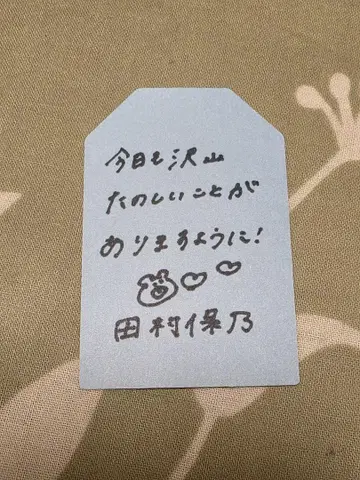 今日も沢山
たのしいことが
ありますように!
田村保乃